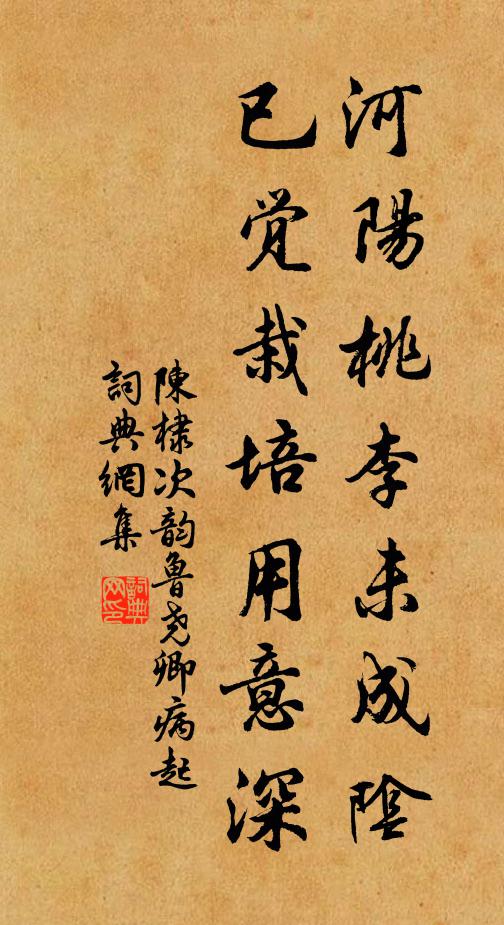 河陽桃李未成陰
已觉栽培用意深
陳棣次韵魯尧卿病起
詞典網集
詞典网印